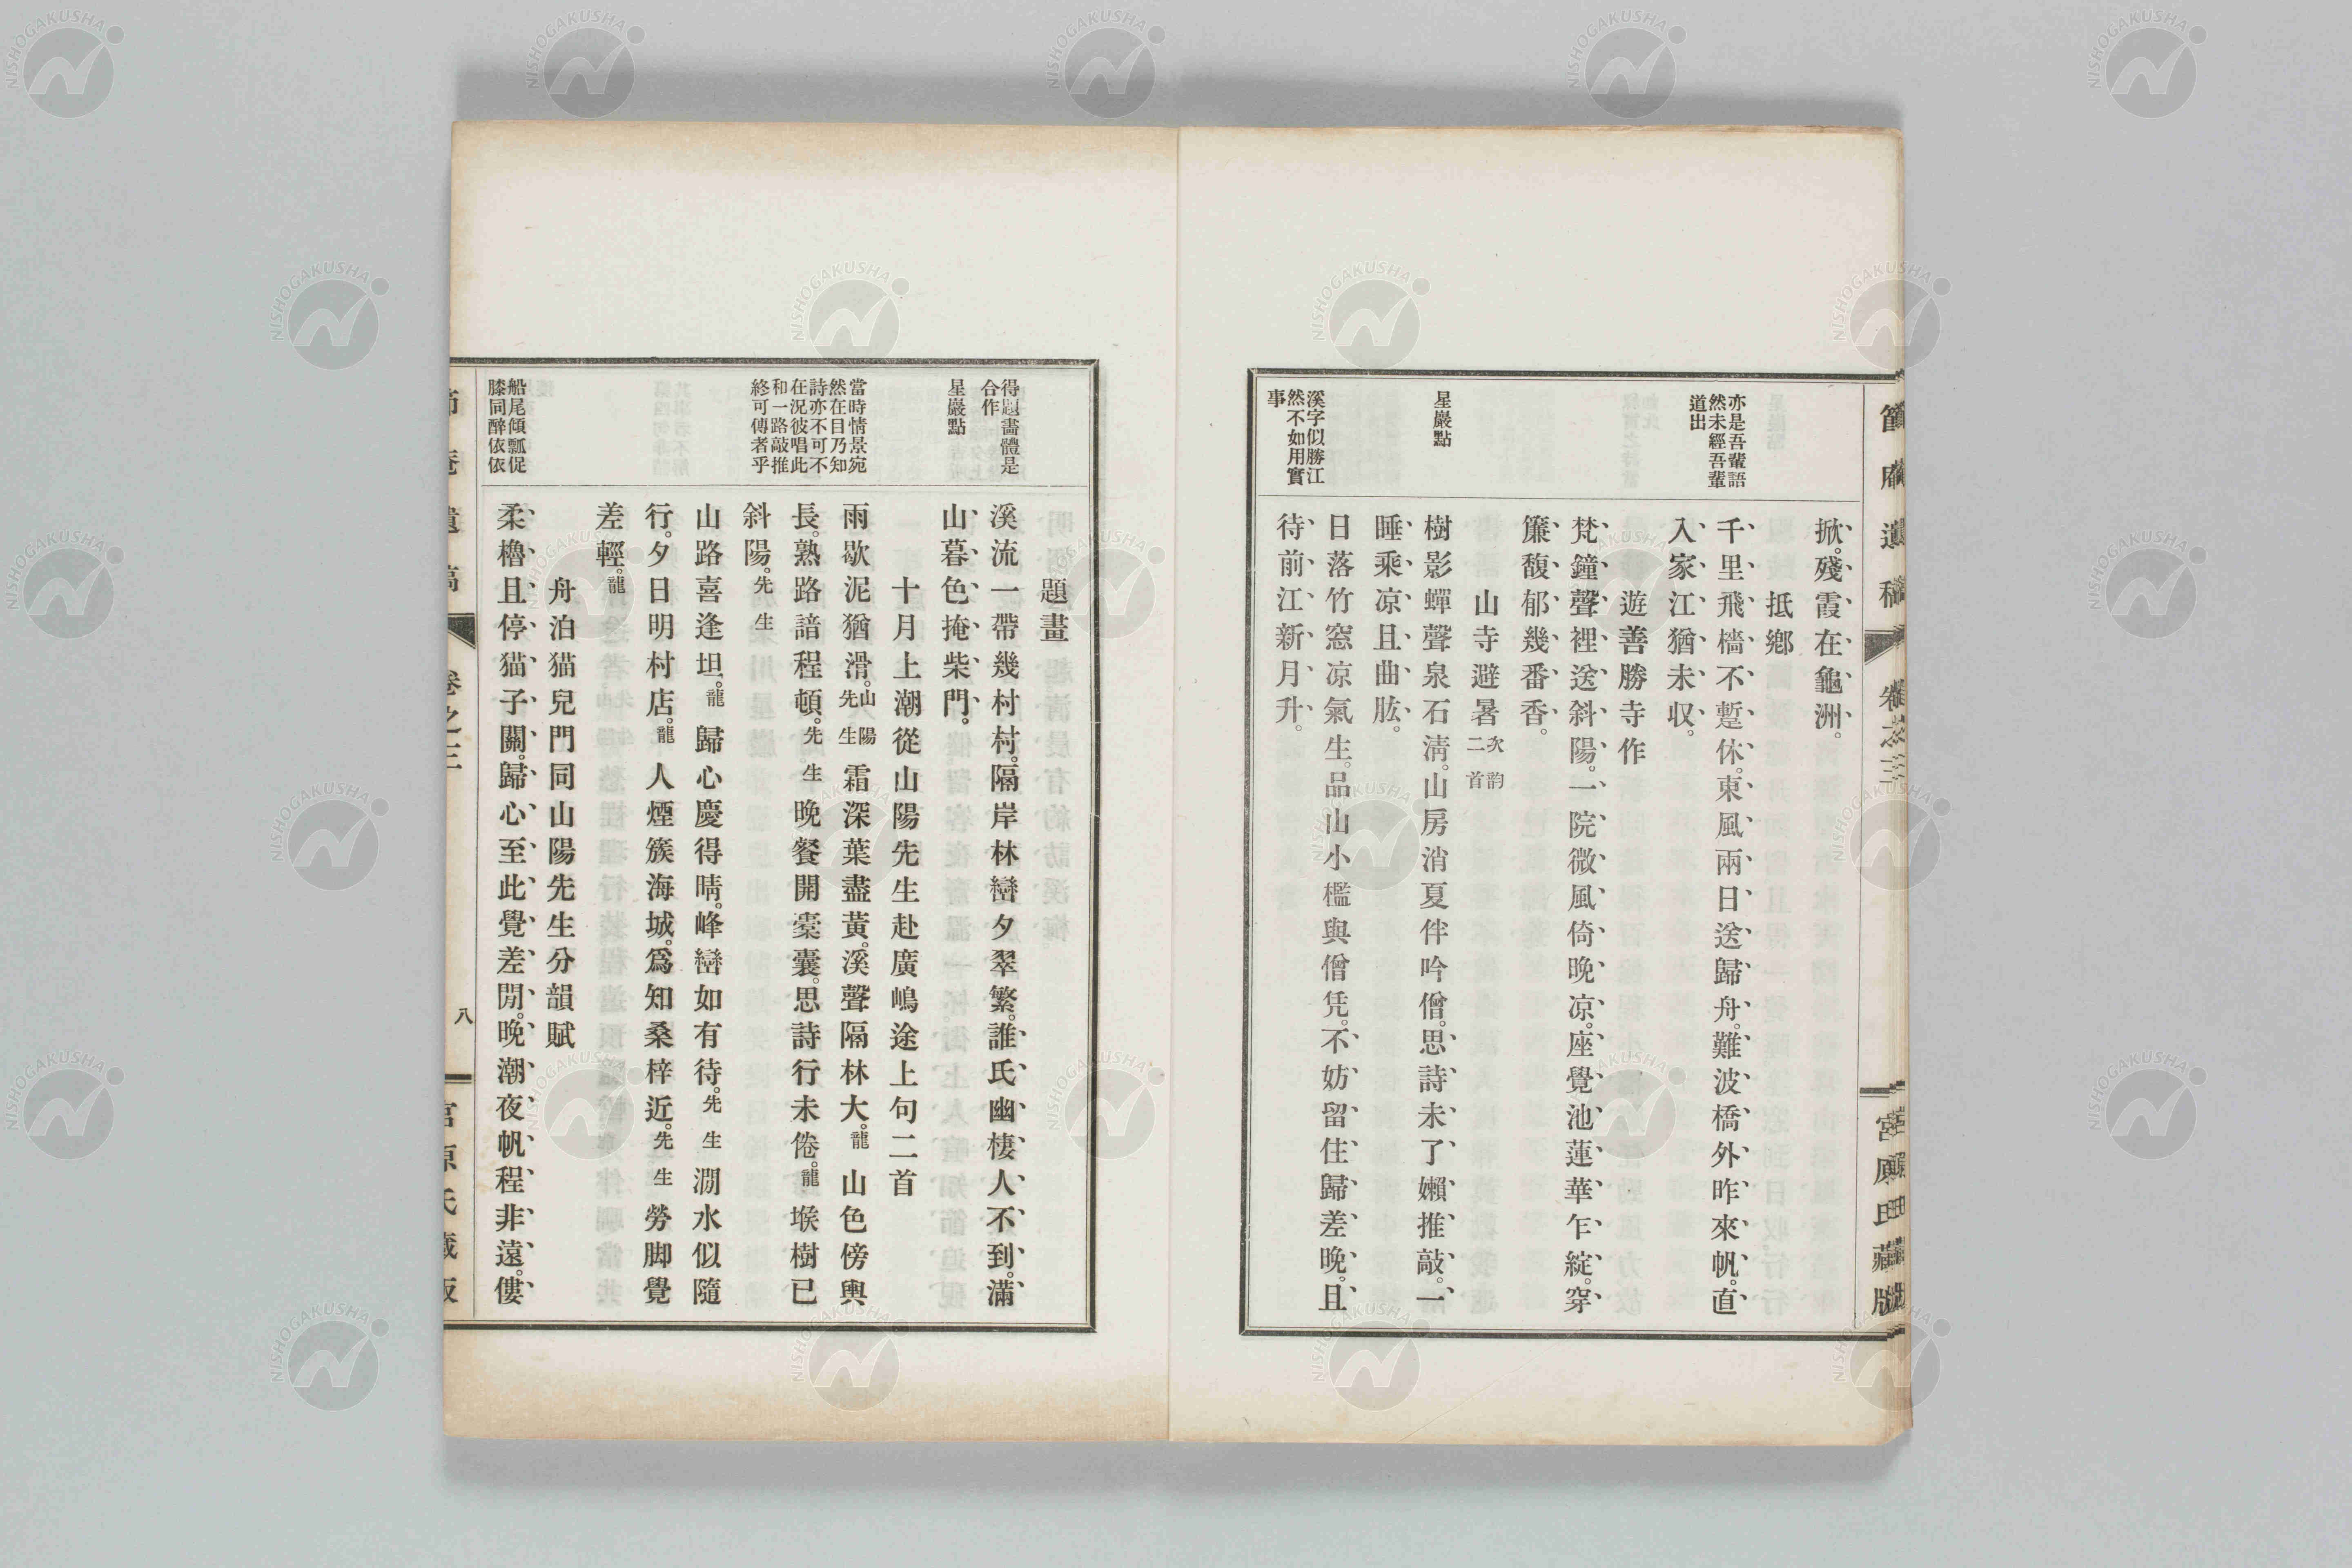 節庵遺稿
卷之三
宮原氏藏版
亦是吾輩語
然未經吾輩
道出
星巖點
溪字似勝江
然不如用實
事
掀。殘霞在龜洲。
抵鄕
千里飛檣不蹔休。東風兩日送歸舟。難波橋外昨來帆。直
入家江猶未収。
遊善勝寺作
梵鐘聲裡送斜陽。一院微風倚晚凉。座覺池蓮華乍綻。穿
簾馥郁幾番香。
山寺避暑 次韵二首
樹影蟬聲泉石淸。山房消夏伴吟僧。思詩未了嬾推敲。一
睡乘凉且曲肱。
日落竹窓凉氣生。品山小檻與僧凭。不妨留住歸差晚。且
待前江新月升。
得題畵體是
合作
星巖點
當時情景宛
然在目乃知
詩亦不可不
在況彼唱此
和一路敲推
終可傳者乎
船尾傾瓢促
膝同醉依依
題畫
溪流一帶幾村村。隔岸林巒夕翠繁。誰氏幽棲人不到。滿
山暮色掩柴門。
十月上潮從山陽先生赴廣嶋途上句二首
雨歇泥猶滑。山陽先生 霜深葉盡黃。溪聲隔林大。龍 山色傍輿
長。熟路諳程頓。先生 晚餐開槖囊。思詩行未倦。龍 堠樹已
斜陽。先生
山路喜逢坦。龍 歸心慶得晴。峰巒如有待。先生 澗水似隨
行。夕日明村店。龍 人煙簇海城。爲知桑梓近。先生 勞脚覺
差輕。龍
舟泊猫兒門同山陽先生分韻賦
柔櫓且停猫子關。歸心至此覺差閒。晚潮夜帆程非遠。僂
節庵遺稿
卷之三
八
宮原氏藏版